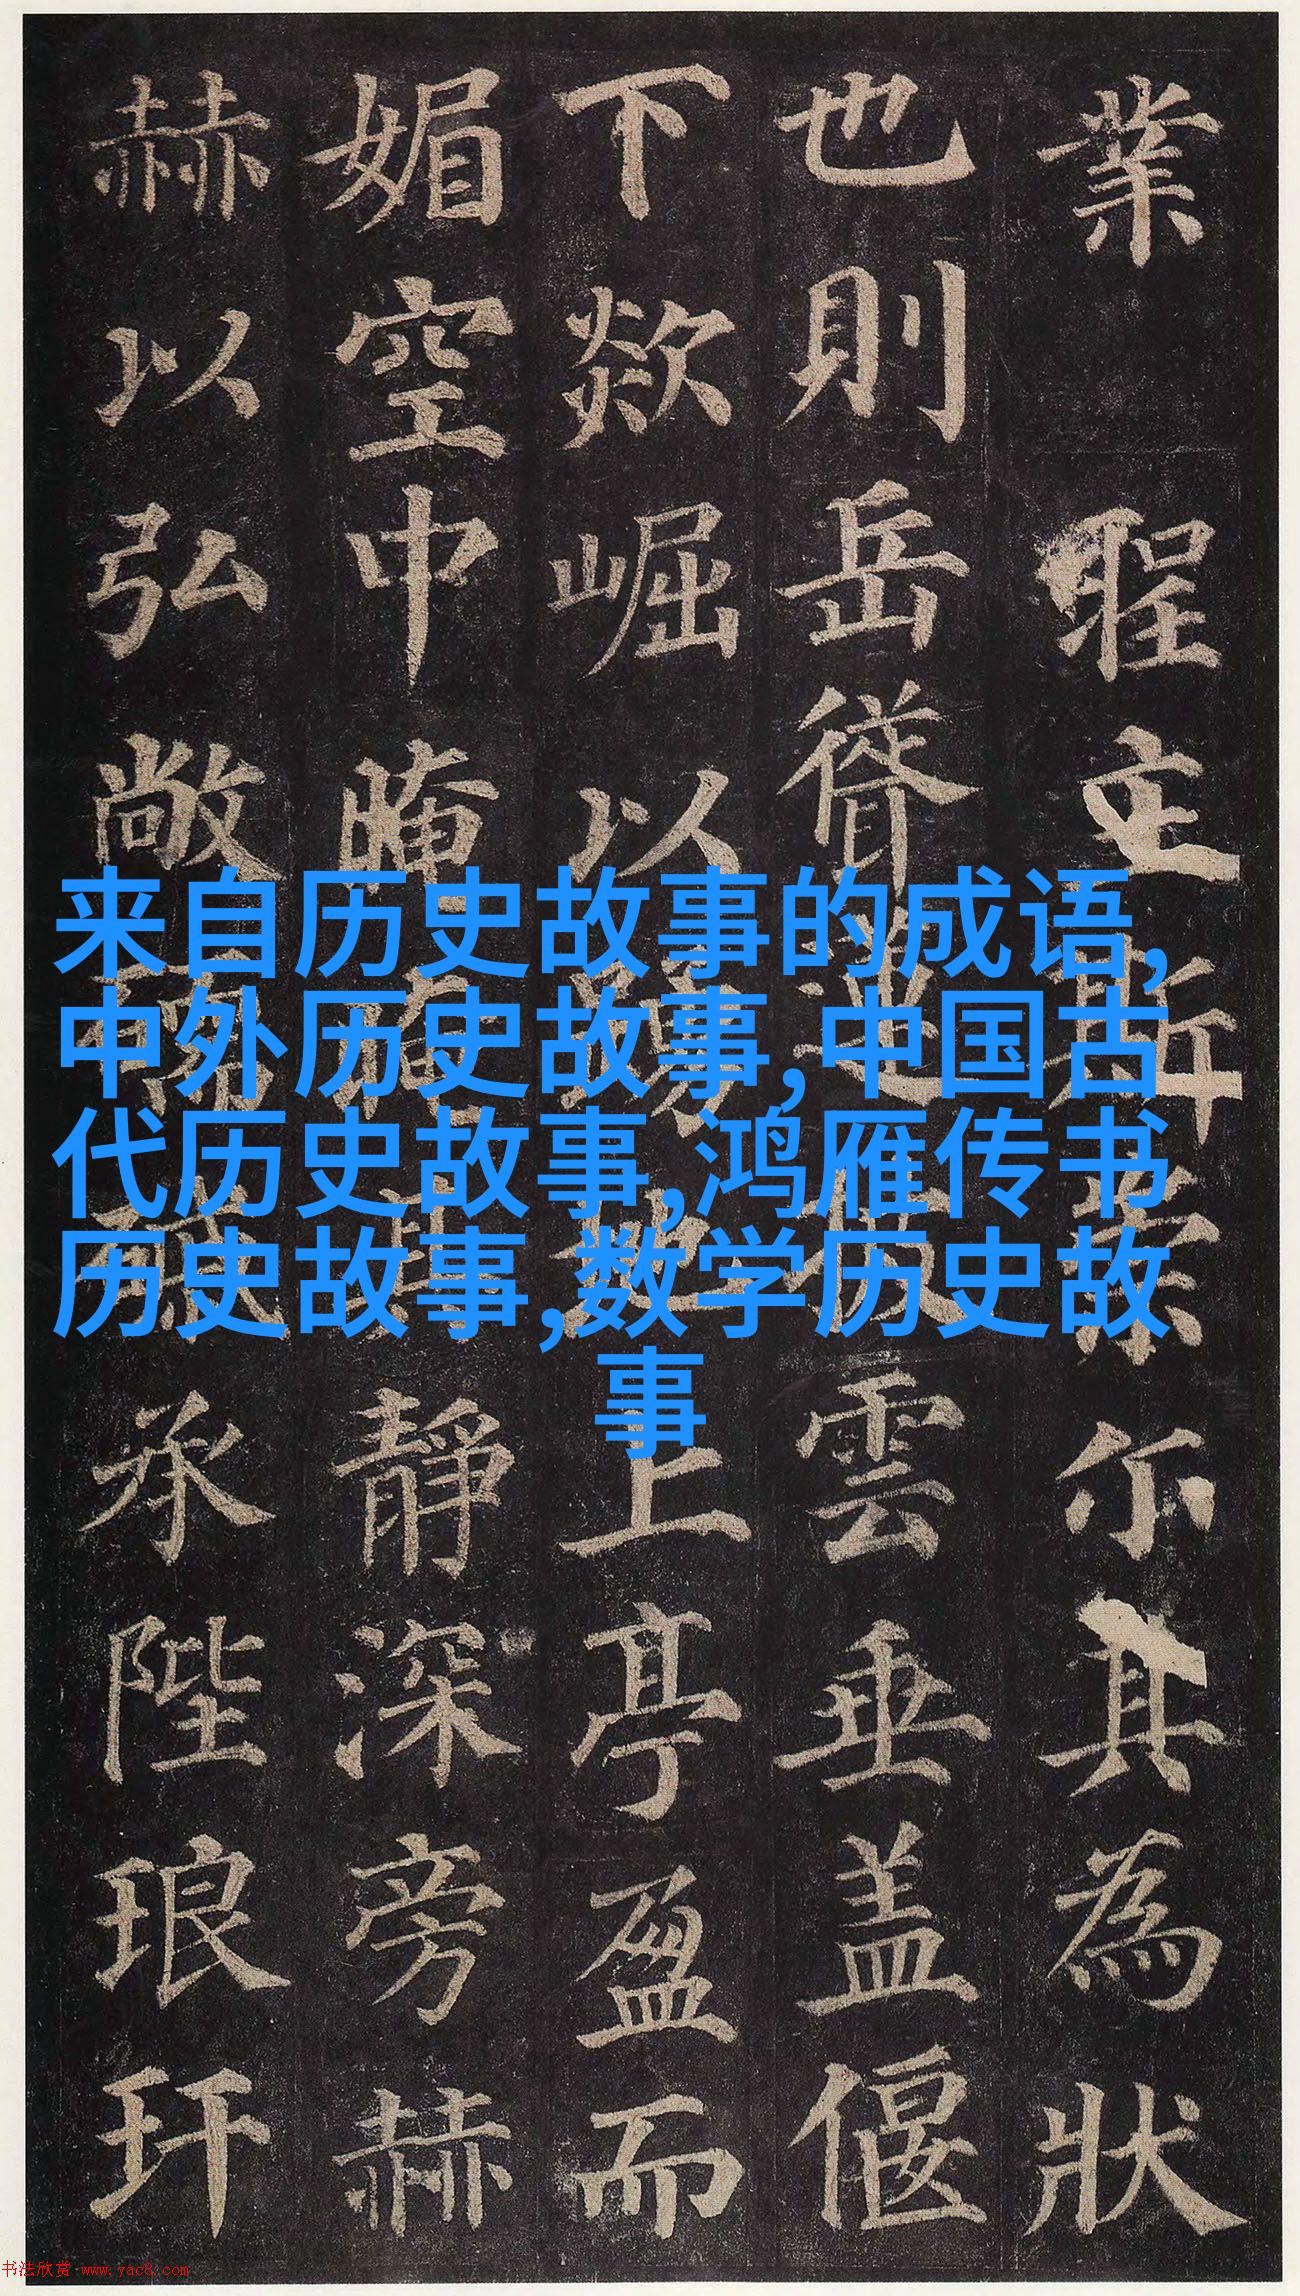 業 聖立斯業尔其為狀
也則岳聳蓮披雲垂盖偃
下欻崛以踴地上亭盈而
媚空中晻靜深旁赫
赫以弘敞承陛琅玕
来自历史故事的成语,
中外历史故事,中国古
代历史故事,鸿雁传书
历史故事,数学历史故
事
书法欣赏 www.yac8.com